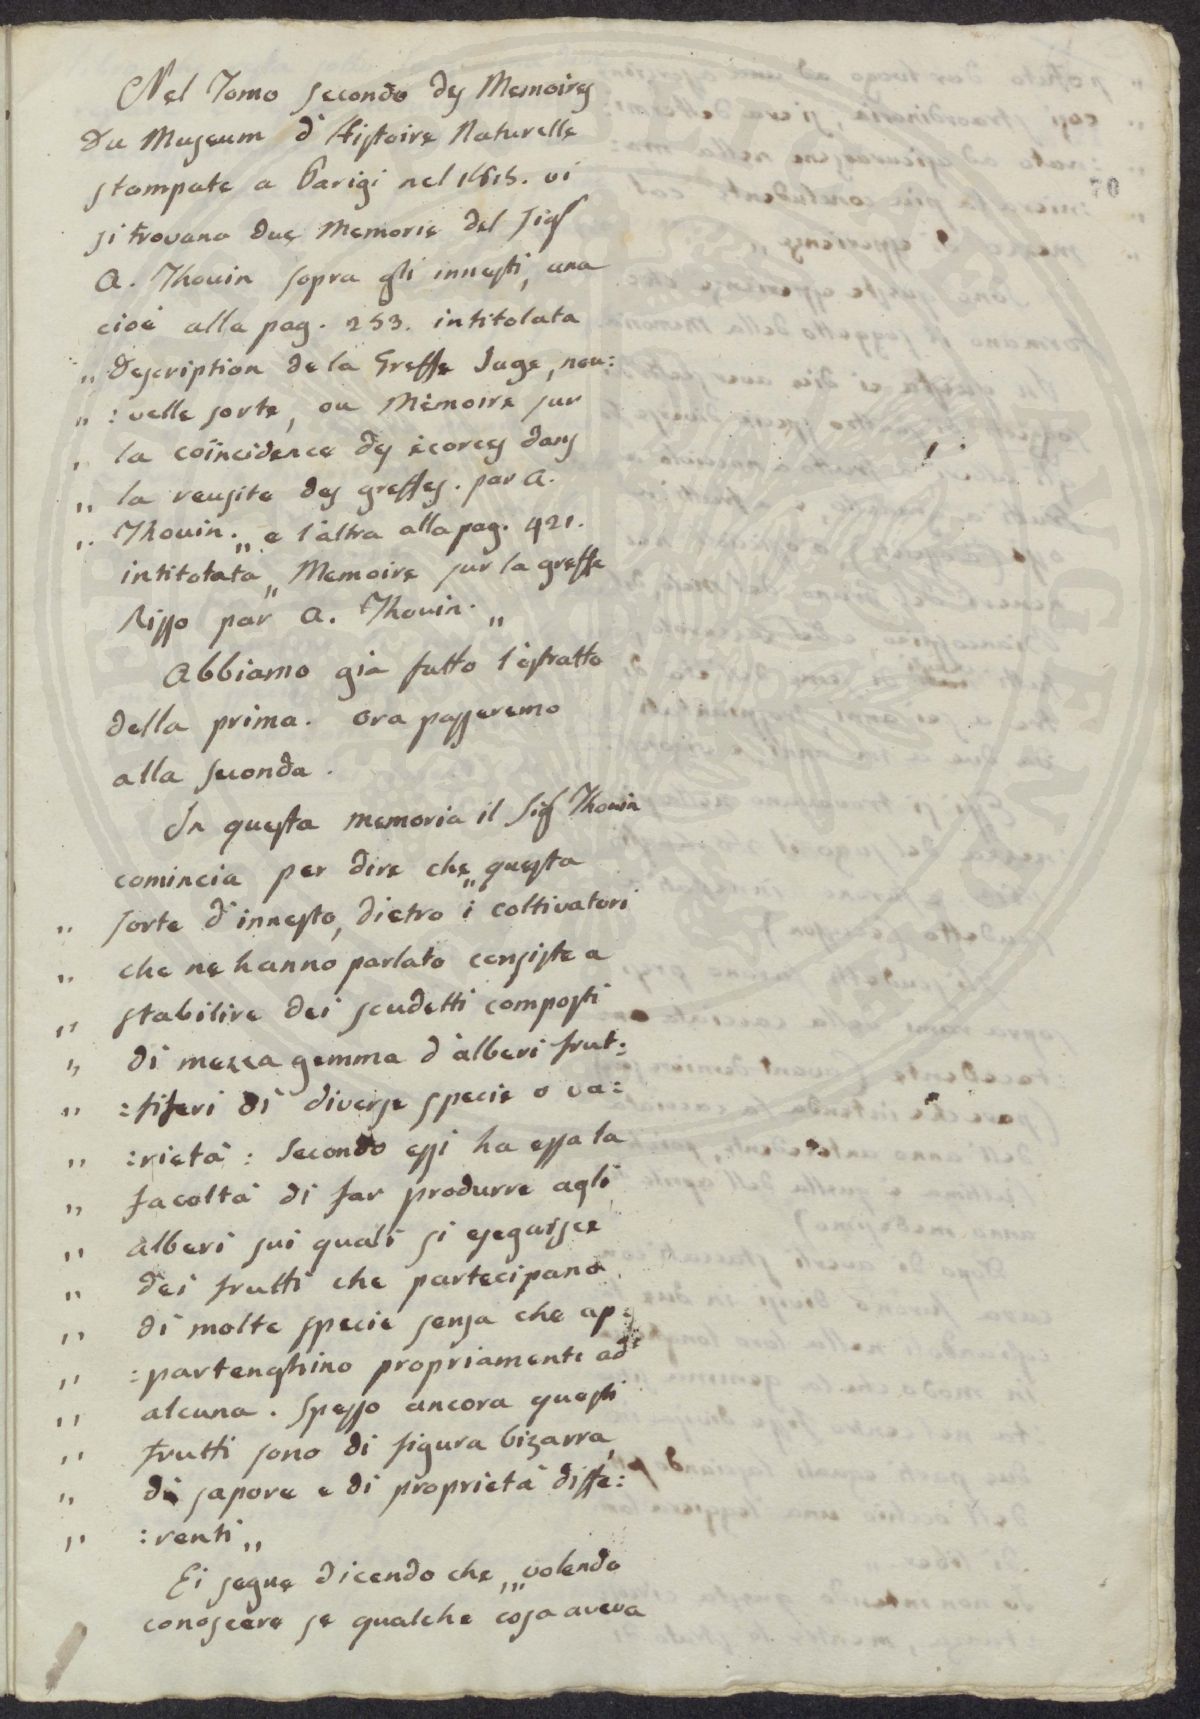 70
Nel Tomo secondo des Memoires
du Museum d'Histoire Naturelle
stampate a Parigi nel 1815. vi
si trovano due Memorie del Sigr
A. Thouin sopra gli innesti, una
cioè alla pag. 253. intitolata
„ Description de la Greffe Juge, nou:
„ :velle sorte, ou Mèmoire sur
„ la coïncidence des ècorces dans
„ la reusite des greffes. par A.
„ Thouin. „ e l'altra alla pag. 421.
intitolata „ Memoire sur la greffe
Risso par A. Thouin. „
Abbiamo già fatto l'estratto
della prima. Ora passeremo
alla seconda.
In questa memoria il Sigr Thouin
comincia per dire che „ questa
„ sorte d'innesto, dietro i coltivatori
„ che ne hanno parlato consiste a
„ stabilire dei scudetti composti
„ di mezza gemma d'alberi frut:
„ :tiferi di diverse specie o va:
„ :rietà: Secondo essi ha essa la
„ facoltà di far produrre agli
„ alberi sui quali si eseguisce
„ dei frutti che partecipano
„ di molte specie senza che ap:
„ :partenghino propriamente ad
„ alcuna. Spesso ancora questi
„ frutti sono di figura bizarra,
„ di sapore e di proprietà diffe:
„ :renti „
Ei segue dicendo che „ volendo
conoscere se qualche cosa aveva